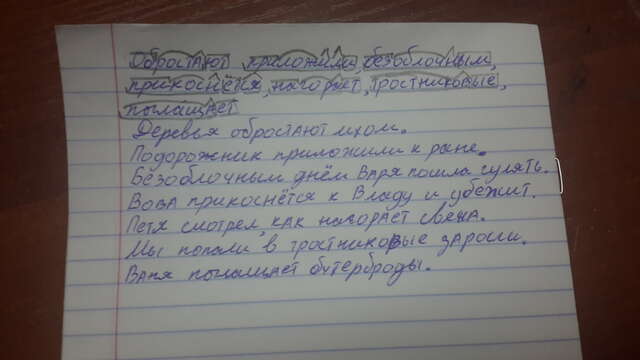 Обростают приложили, безоблочным,
прикоснётся, нагорает, тростниковые,
поглащает
Деревья обростают мхом.
Подорожник приложили к ране.
Безоблочным днём Варя пошла гулять.
Вова прикоснётся к Владу и убежит.
Петя смотрел, как нагорает свеча.
Мы попали в тростниковые заросли.
Ваня поглащает бутерброды.